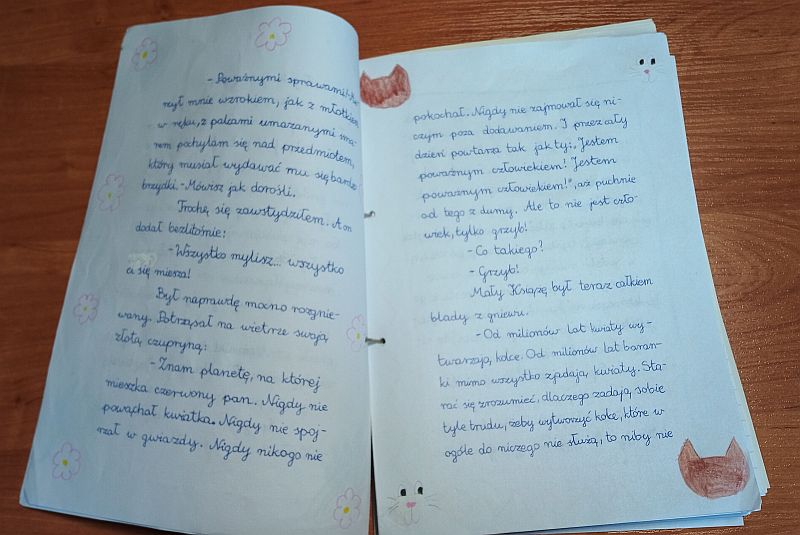 - Poważnymi sprawami! - Mie-
rzył mnie wzrokiem, jak z młotkiem
w ręku, z palcami umazanymi sma-
rem pochylam się nad przedmiotem,
który musiał wydawać mu się bardzo
brzydki. - Mówisz jak dorośli.
Trochę się zawstydziłem. A on
dodał bezlitośnie:
- Wszystko mylisz... wszystko
ci się miesza!
Był naprawdę mocno rozgnie-
wany. Potrząsał na wietrze swoją
złotą czupryną:
- Znam planetę, na której
mieszka czerwony pan. Nigdy nie
powąchał kwiatka. Nigdy nie spoj-
rzał w gwiazdy. Nigdy nikogo nie
pokochał. Nigdy nie zajmował się ni-
czym poza dodawaniem. I przez cały
dzień powtarza tak jak ty: „Jestem
poważnym człowiekiem! Jestem
poważnym człowiekiem!", aż puchnie
od tego z dumy. Ale to nie jest czło-
wiek, tylko grzyb!
- Co takiego?
- Grzyb!
Mały Książę był teraz całkiem
blady z gniewu.
- Od milionów lat kwiaty wy-
twarzają kolce. Od milionów lat baran-
ki mimo wszystko zjadają kwiaty. Sta-
rać się zrozumieć, dlaczego zadają sobie
tyle trudu, żeby wytworzyć kolce, które w
ogóle do niczego nie służą, to niby nie